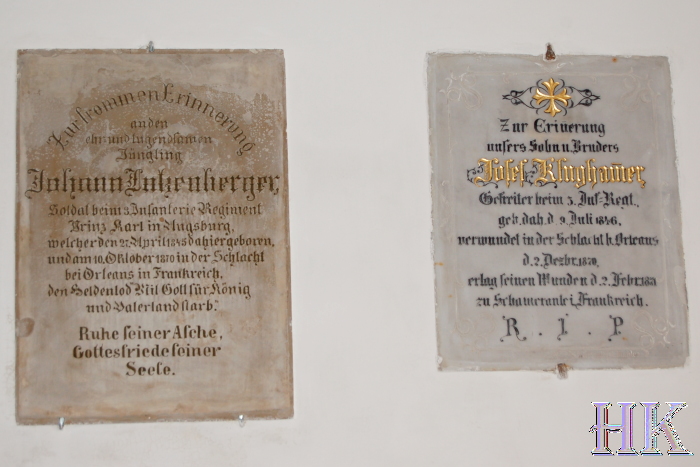 Zur frommen Erinnerung
an den
ehr- und tugendsamen
Jüngling
Johann
Soldat beim 3. Infanterie Regiment
Prinz Karl in Augsburg,
welcher den 27. April 1848 dahier geboren,
und am 10. Oktober 1870 in der Schlacht
bei Orleans in Frankreich,
den Heldentod Mit Gott für König
und Vaterland starb."
Ruhe seiner Asche,
Gottesfriede seiner
Seele.
Zur Erinerung
unsers Sohn u. Bruders
Josef Klughamer,
Gefreiter beim 3. Inf-Regt.,
geb. dah. d. 9. Juli 1846,
verwundet in der Schlacht b. Orleans
d. 2. Dezbr. 1870,
erlag seinen Wunden d. 2. Febr. 1871
zu i. Frankreich.
R . I . P
HK